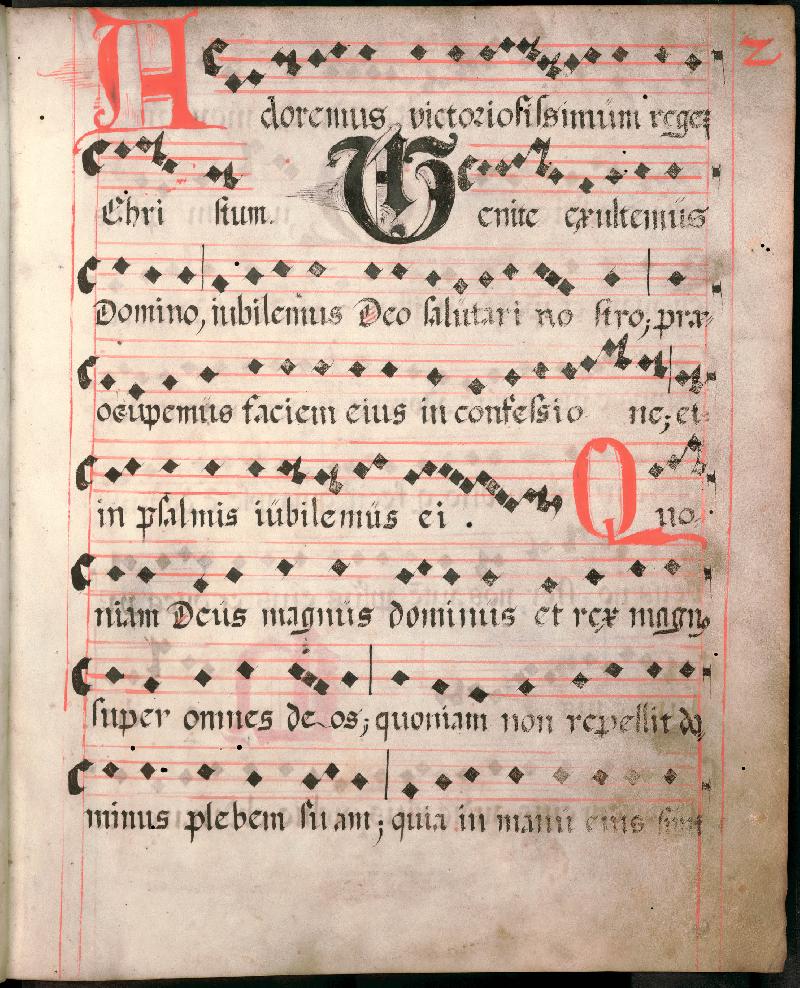 2
Adoremus victoriosissimum rege
Chri stum. Venite exultemus
Domino, iubilemus Deo salutari no stro; præ
ocupemus faciem eius in confessio ne; et
in psalmis iubilemus ei . Quo
niam Deus magnus dominus et rex magn9
super omnes de os; quoniam non repellit do
minus plebem su am; quia in manu eius sunt